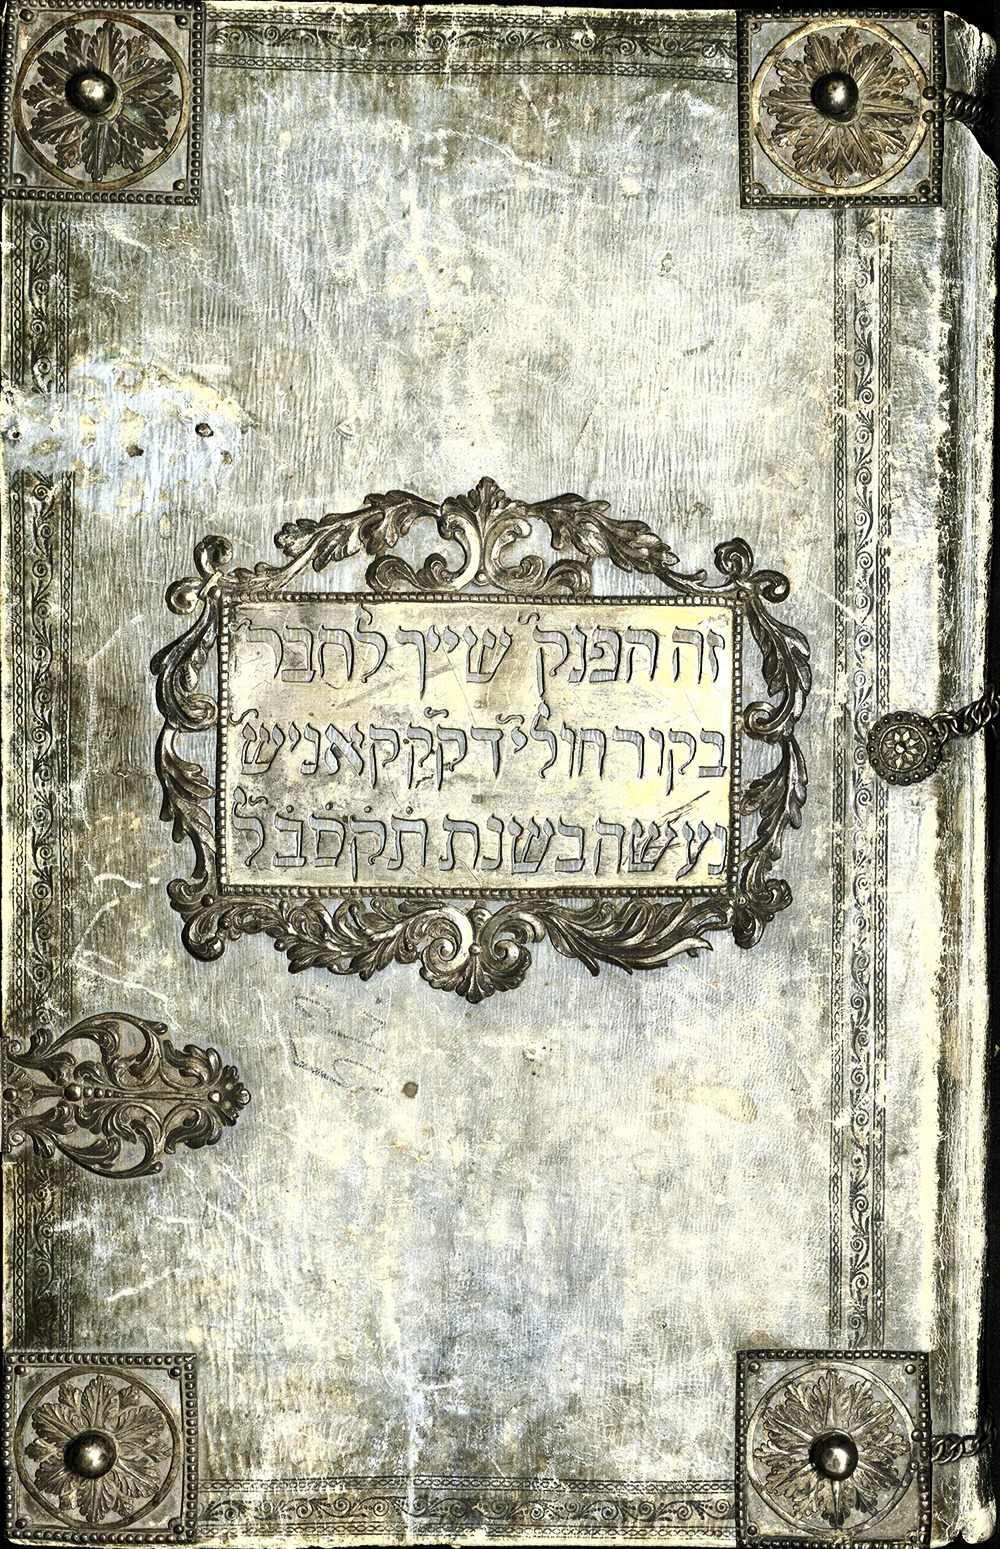 זה הפנק' שייך לחבר'
בקור חולי' דק"ק קאניש'
נעשה בשנת תקסב ל'